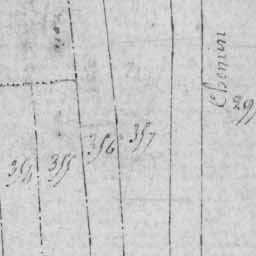 Chemin
299
354
355
356
357